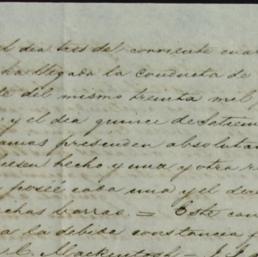 el dia tres del corriente cuan
ha llegado la conducta de
del mismo treinta mil
y el dia quince de Setiem
presenden absoluta
hecho y una y otra
poseé cada una y el de
chas barras = Este con
a la debida constancia
Mackentosh = J.